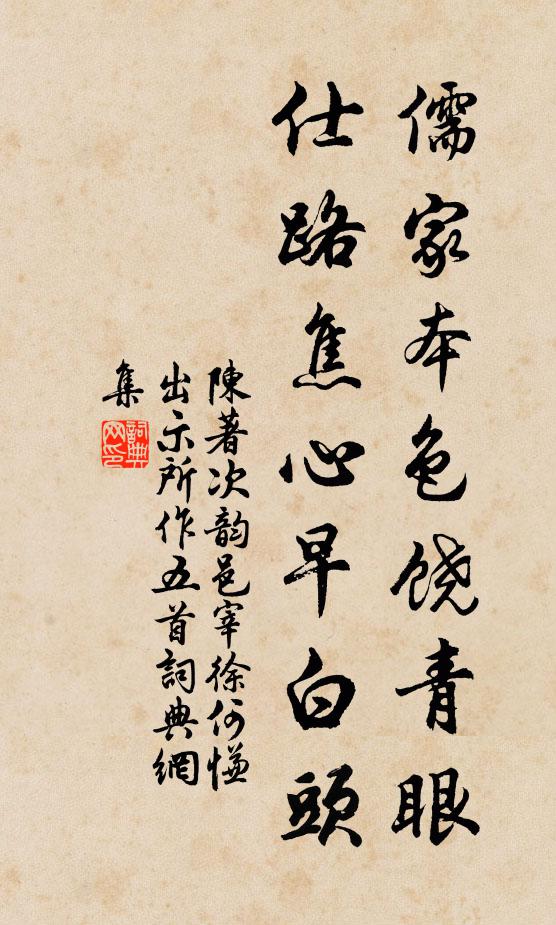 儒家本色饒青眼
仕路焦心早白頭
陳著次韵邑宰徐何慊
出示所作五首詞典網
集
詞典
网印